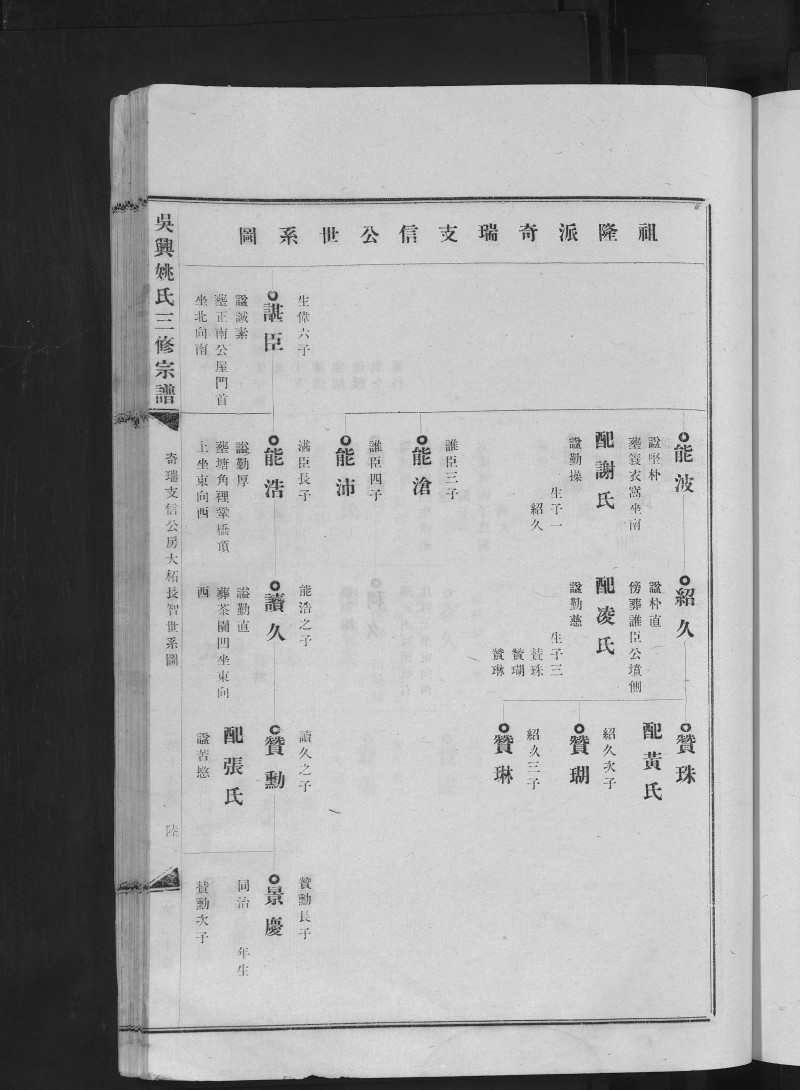 祖隆派奇瑞支信公世系圖
能波
諡堅朴
葬簑衣窩坐南
配謝氏
諡勤操
生子一
紹久
誰臣三子
能滄
誰臣四子
能沛
諶臣長子
能浩
諡勤厚
葬塘角裡鞏橋頂
上坐東向西
紹久
諡朴直
傍葬誰臣公墳側
配凌氏
諡勤慈
生子三
贊珠
贊瑚
贊琳
能浩之子
讀久
諡勤直
葬茶園凹坐東向
西
贊珠
配黃氏
紹久次子
贊瑚
紹久三子
贊琳
讀久之子
贊勳
配張氏
諡苦慜
生偉六子
諶臣
諡誠素
葬正南公屋門首
坐北向南
贊勳長子
景慶
同治　年生
贊勳次子
吳興姚氏三修宗譜
奇瑞支信公房大柘長智世系圖
陸